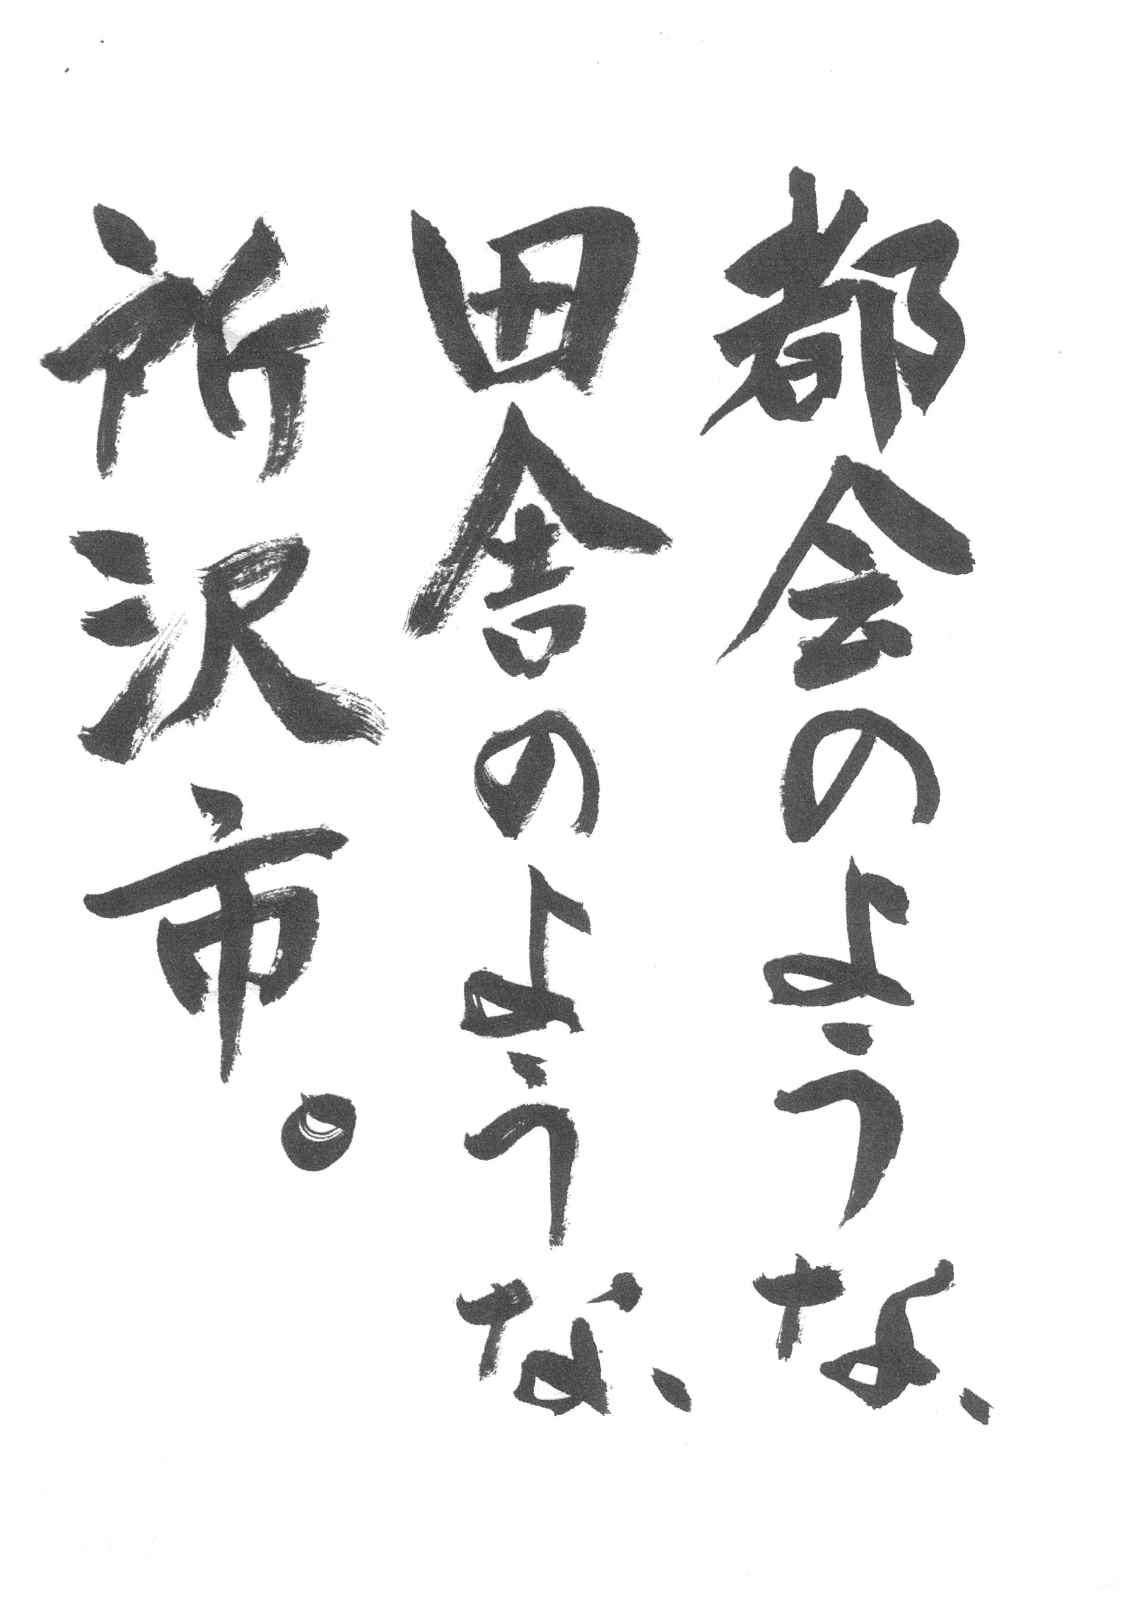 都会のような、
田舎のような、
所沢市。